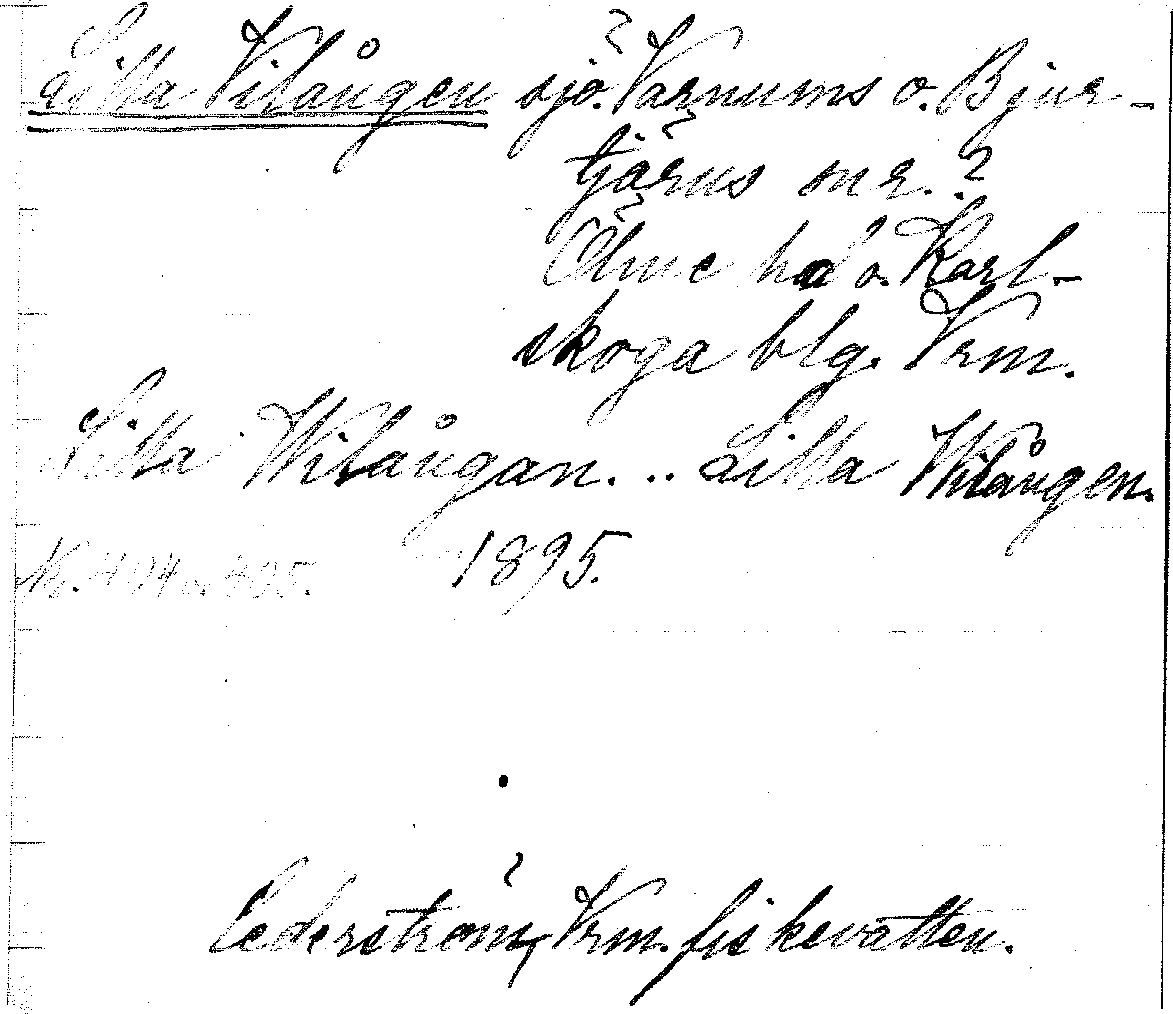 Lilla Vilången sjö. Varnums o. Bjur-
tjärns snr. ?
Ölme hd o. Karl-
skoga blg. Vrm.
Lilla Wilångan... Lilla Wilången.
1895.
Cederström, Vrm. fiskevatten.